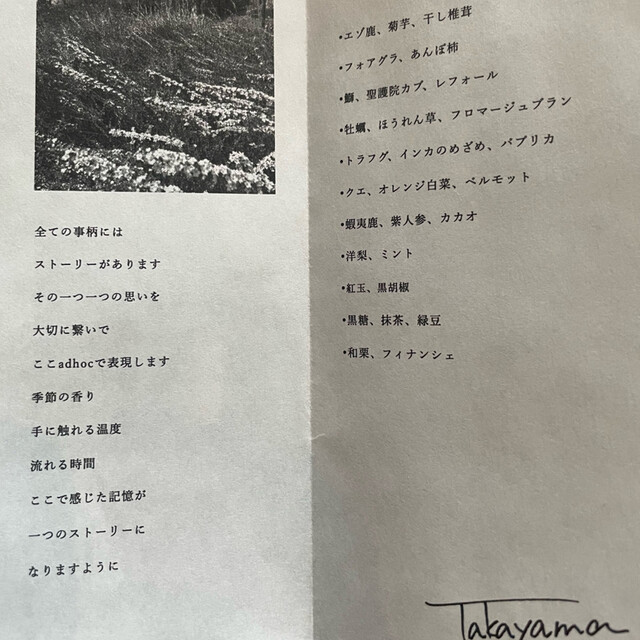 全ての事柄には
ストーリーがあります
その一つ一つの思いを
大切に繋いで
ここadhocで表現します
季節の香り
手に触れる温度
流れる時間
ここで感じた記憶が
一つのストーリーに
なりますように
•エゾ鹿、菊芋、干し椎茸
•フォアグラ、あんぽ柿
•鰤、聖護院カブ、レフォール
•牡蠣、ほうれん草、フロマージュブラン
•トラフグ、インカのめざめ、パプリカ
•クエ、オレンジ白菜、ベルモット
•蝦夷鹿、紫人参、カカオ
•洋梨、ミント
•紅玉、黒胡椒
•黒糖、抹茶、緑豆
•和栗、フィナンシェ
Takayama